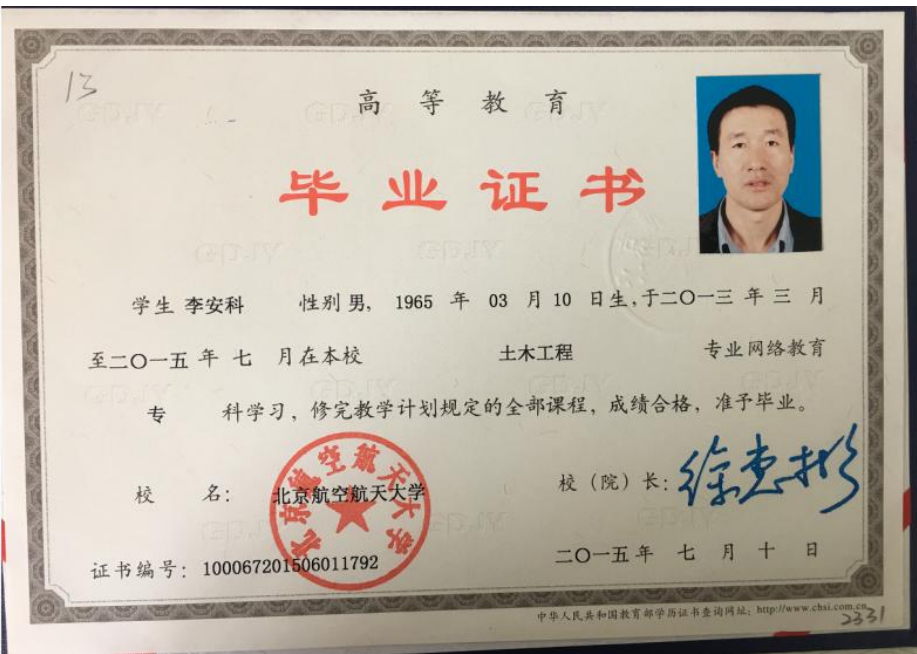 13
高等教育
毕业证书
学生 李安科 性别 男, 1965 年 03 月 10 日生,于二〇一三 年 三 月
至二〇一五 年 七 月在本校 土木工程 专业网络教育
专 科学习，修完教学计划规定的全部课程，成绩合格，准予毕业。
校 名： 北京航空航天大学
北京航空航天大学
校（院）长：徐惠彬
证书编号：100067201506011792
二〇一五 年 七 月 十 日
中华人民共和国教育部学历证书查询网址：http://www.chsi.com.cn
2331